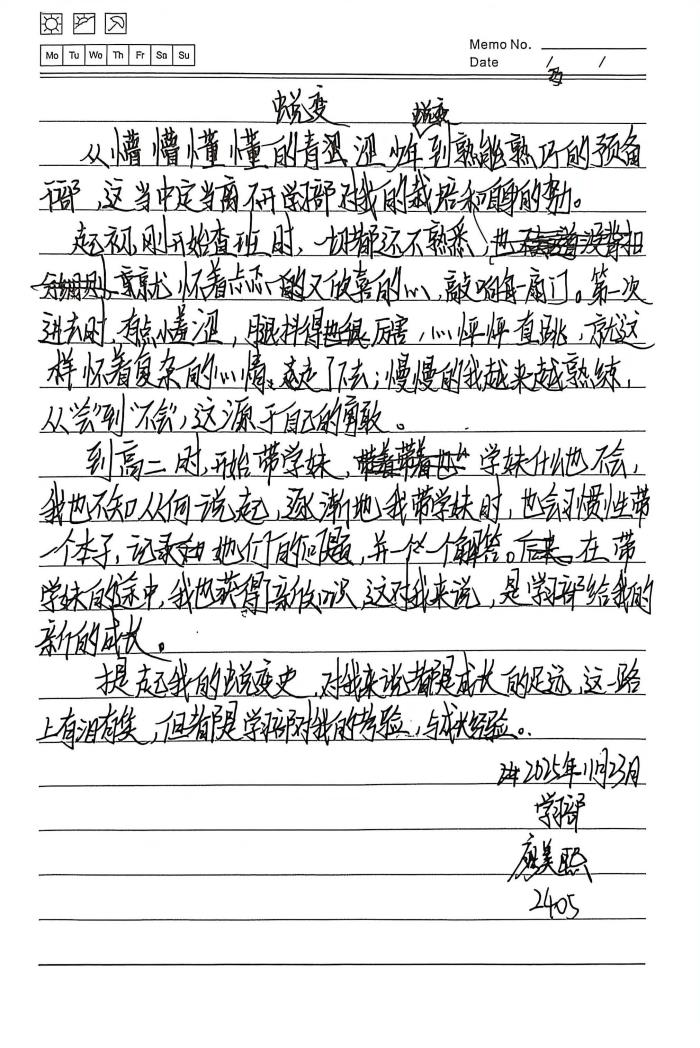 Mo Tu We Th Fr Sa Su
Memo No.
Date / /
蜕变
蜕变
从懵懵懂懂的青涩涩少年到熟能熟巧的预备
干部,这当中定当离不开学习部对我的栽培和自身的努力。
起初,刚开始查班时,一切都还不熟悉,也
就怀着忐忑的又欣喜的心,敲响每一扇门。第一次
进去时,有点小羞涩,腿抖得也很厉害,心怦怦直跳,就这
样怀着复杂的心情走了下去;慢慢的我越来越熟练,
从“会”到“不会”,这源于自己的勇敢。
到高二时,开始带学妹,学妹什么也不会,
我也不知从何说起,逐渐地我带学妹时,也会习惯性带
一个本子,记录她们的问题,并一个一个解答。后来在带
学妹的途中,我也获得新的知识,这对我来说,是学习部给我的
新的成长。
提起我的蜕变史,对我来说都是成长的足迹,这一路
上有泪有笑,但都是学习部对我的考验,与成长经验。
2025年11月23日
学习部
廖美熙
2405